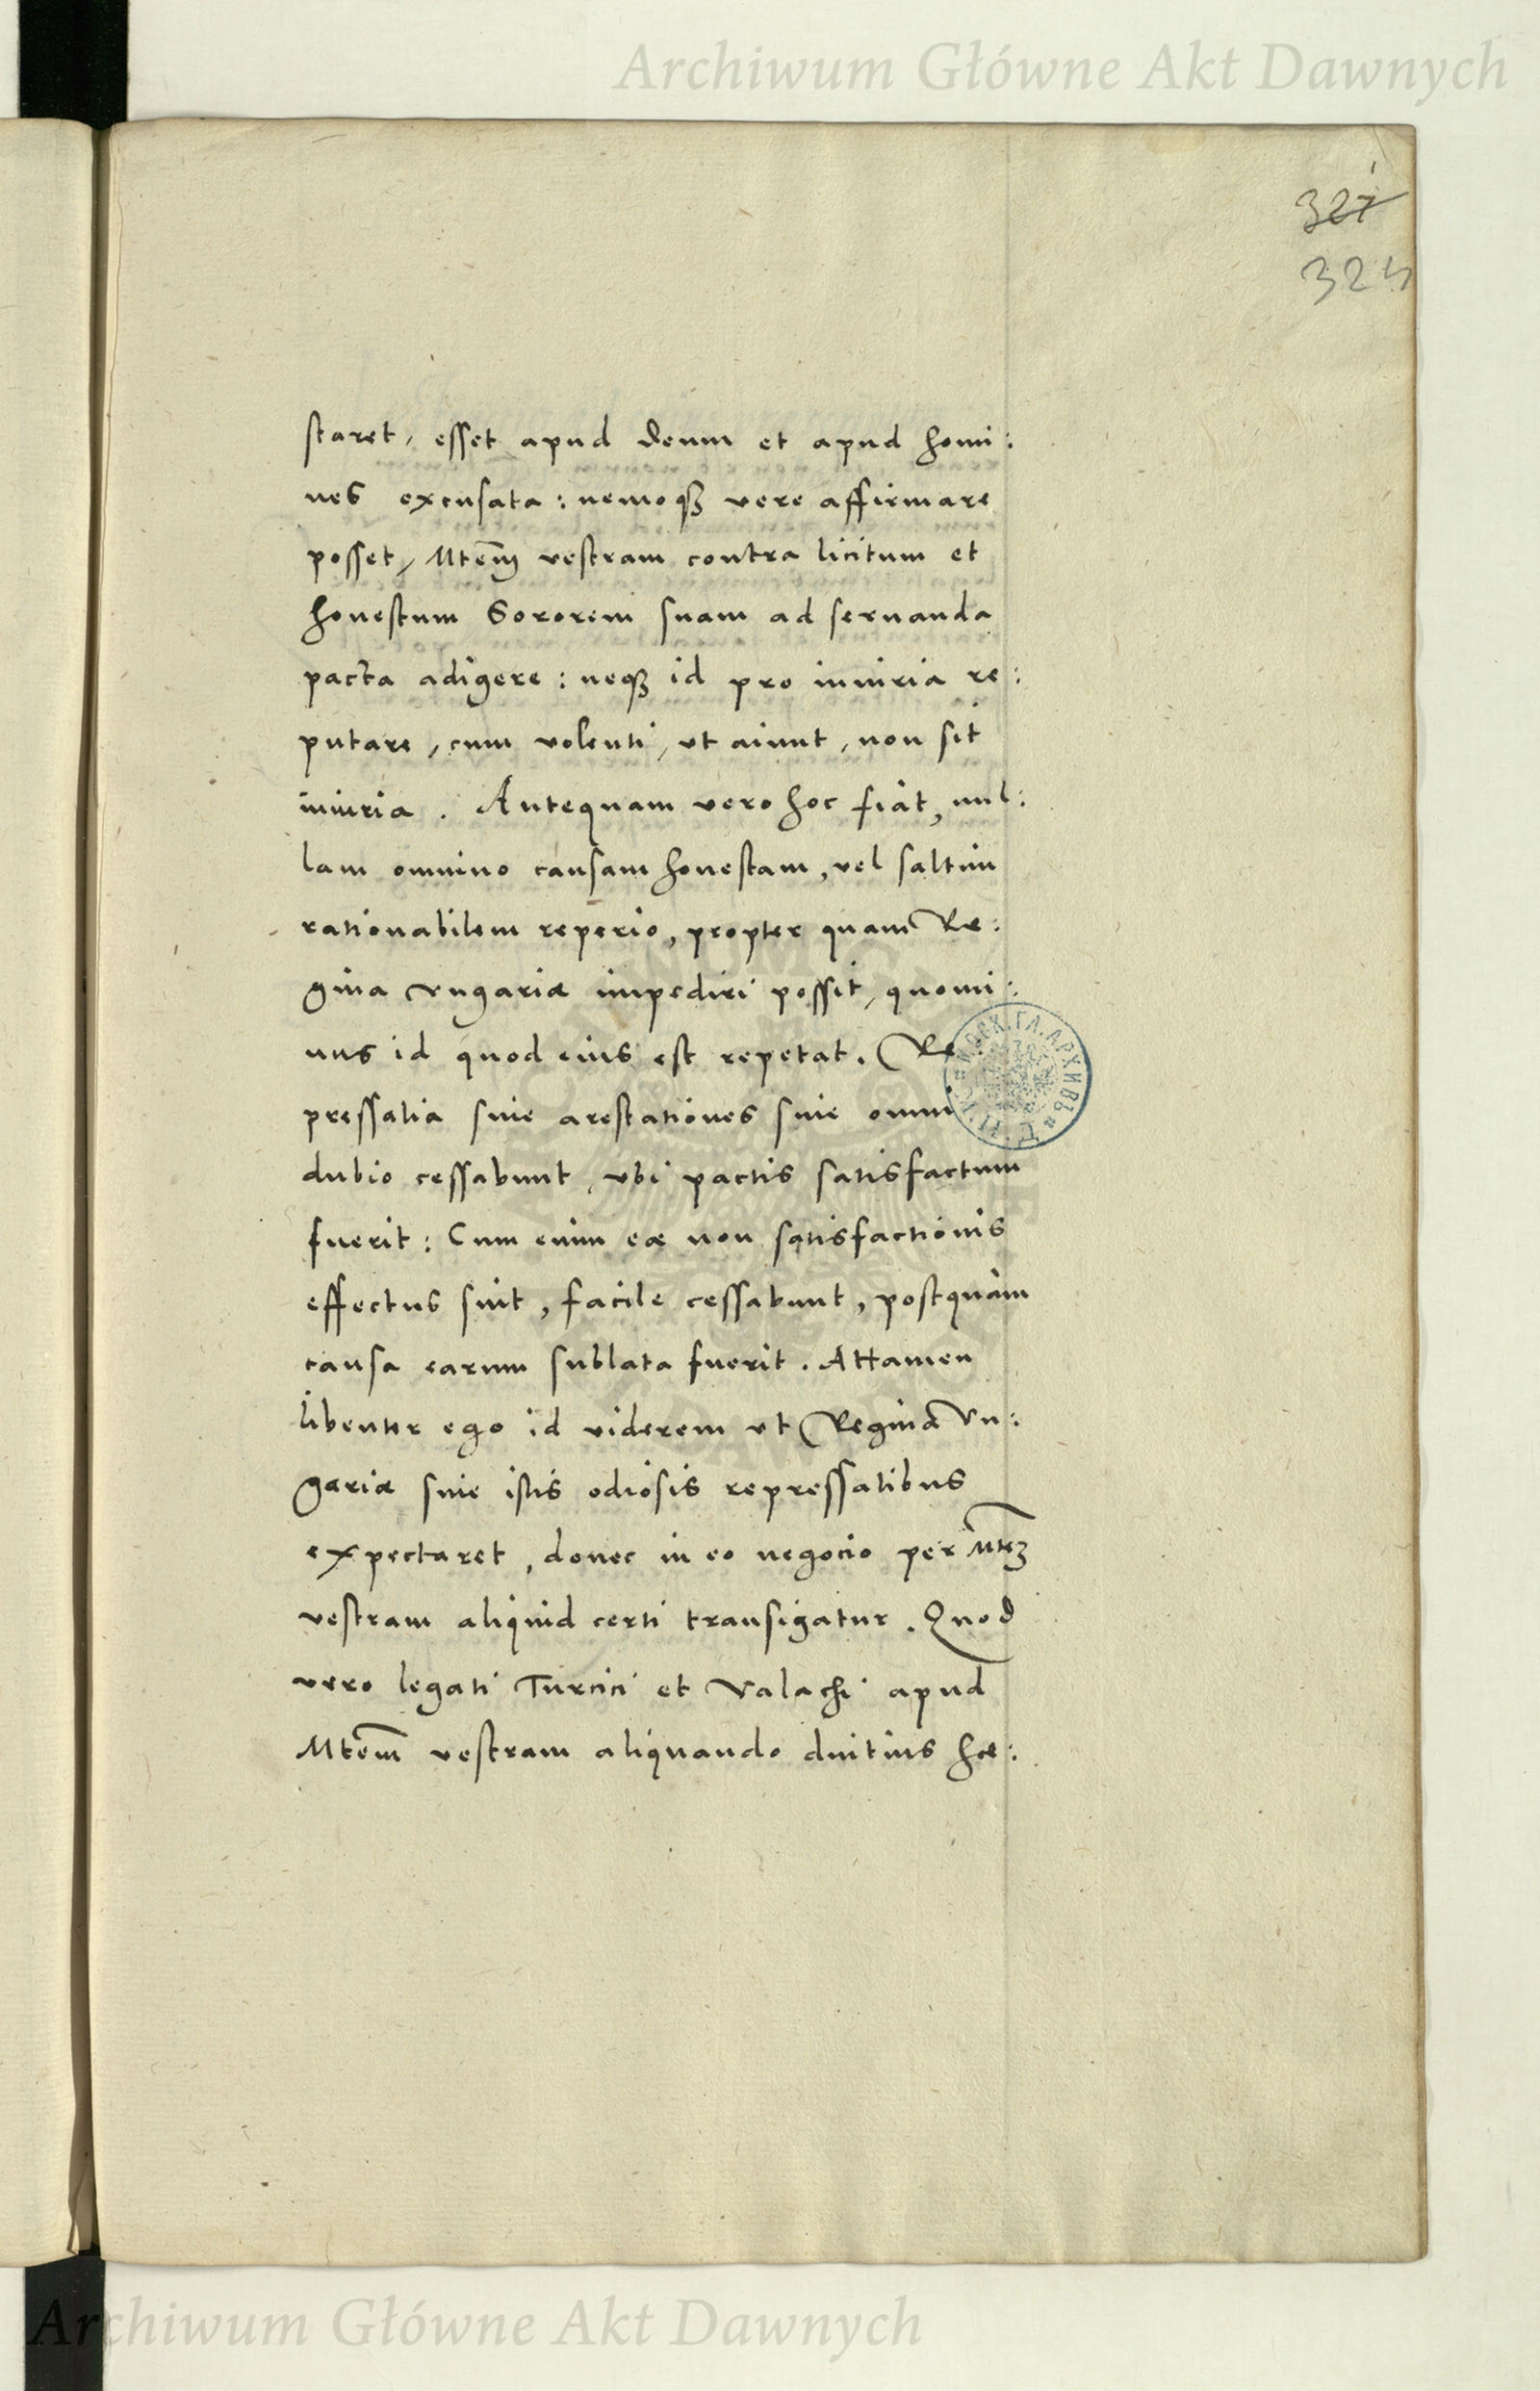 Archiwum Główne Akt Dawnych
327
324
staret, esset apud Deum et apud homi:
nes excusata: nemoqꝫ vere affirmare
posset, Mtem̄ vestram contra licitum et
honestum Sororem suam ad seruanda
pacta adigere: neqꝫ id pro iniuria re:
putare, cum volenti, ut aiunt, non sit
iniuria. Antequam vero hoc fiat, nul:
lam omnino causam honestam, vel saltim
rationabilem reperio, propter quam Re:
gina Vngariæ impediri possit, quomi:
nus id quod eius est repetat. Re
pressalia siue arestationes sine omni
dubio cessabunt, vbi pactis satisfactum
fuerit: Cum enim eæ non satisfactionis
effectus sint, facile cessabunt, postquam
causa earum sublata fuerit. Attamen
libenter ego id viderem ut Regina Vn:
gariæ sine istis odiosis repressalibus
expectaret, donec in eo negocio per Mtēꝫ
vestram aliquid certi transigatur. Quod
vero legati Turcici et Valachi apud
Mtem̄ vestram aliquando diutius hæ:
Archiwum Główne Akt Dawnych